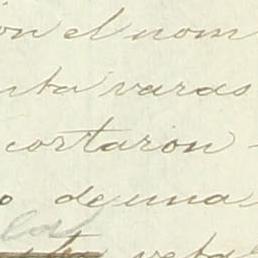 ón el nom
nta varas
cortaron -
o de una
las